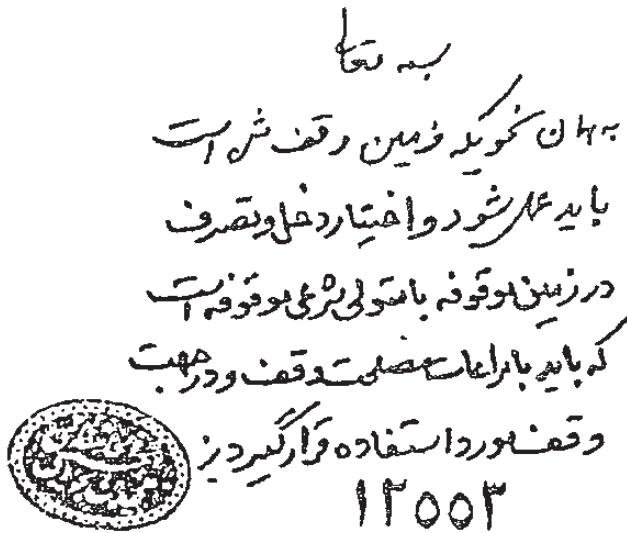 بسمه تعالی
به همان نحویکه زمین وقف شده است
باید عمل شود و اختیار دخل و تصرف
در زمین موقوفه با متولی شرعی موقوفه است
که باید با مراعات مصلحت وقف و در جهت
وقف مورد استفاده قرار گیرد
۱۲۵۵۳